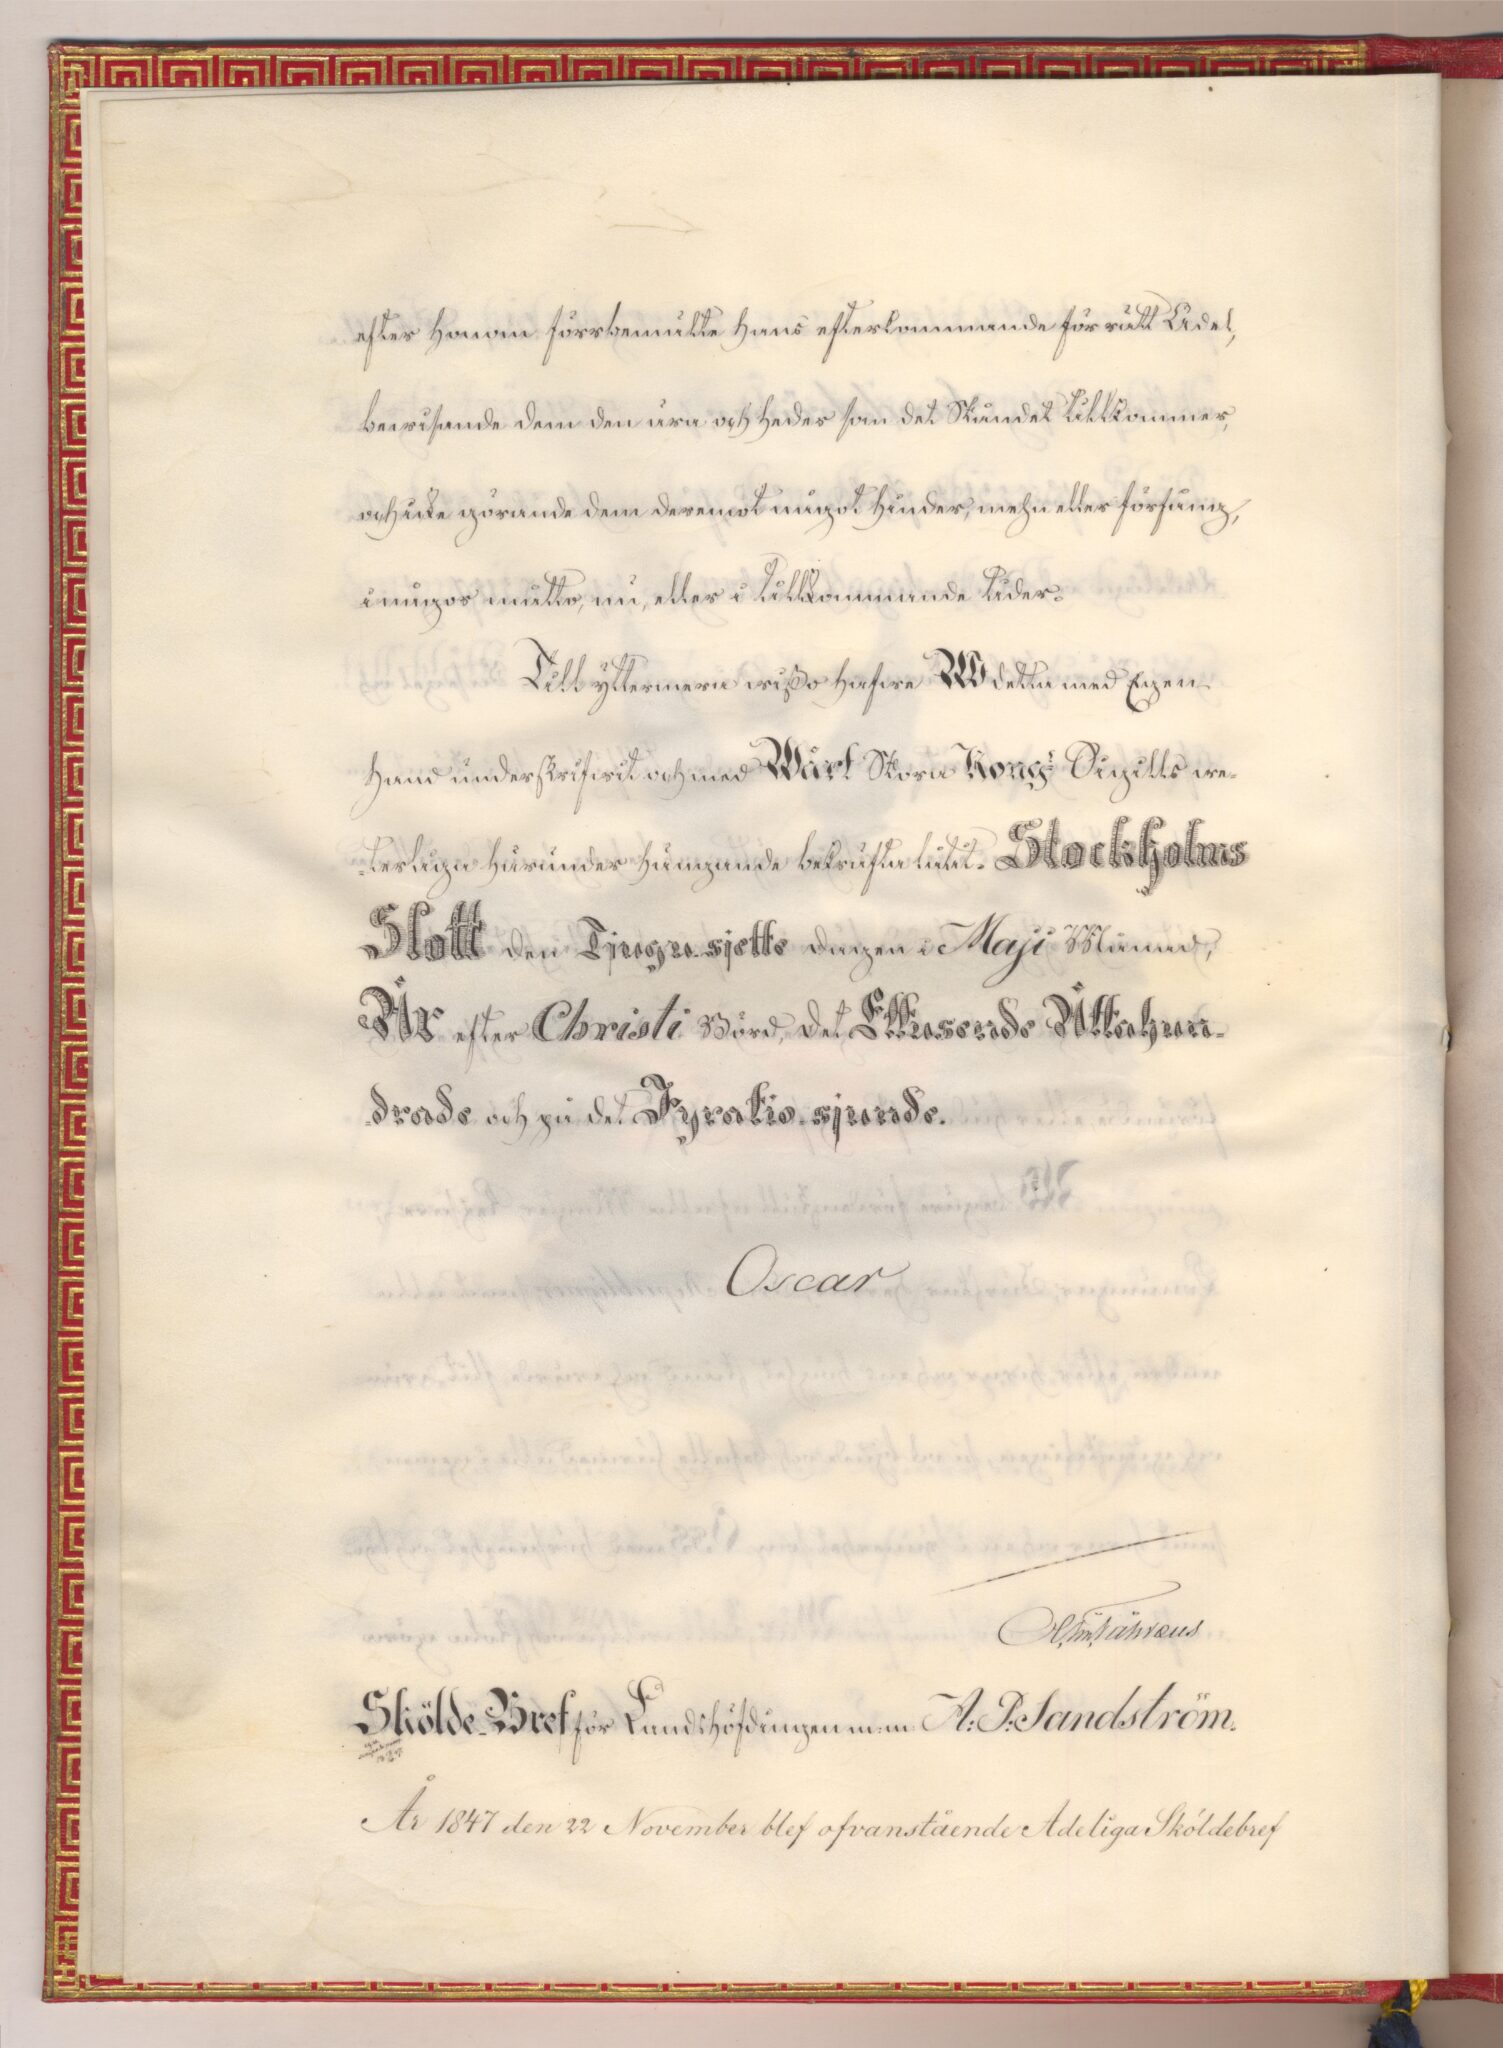 efter Honom förrbemälte Hans efterkommande för rätt Adel,
bewisande dem den ära och heder som det Ståndet tillkommer,
och icke görande dem deremot något hinder, mehn eller förfång,
i någor måtto, nu, eller i tillkommande tider.
Till yttermera wißo hafwe Wi detta med Egen
Hand underskrifwit och med Wårt Stora Kongl Sigills we-
terliga härunder hängande bekräfta låtit. Stockholms
Slott den Tjugusjette dagen i Maji Månad,
År efter Christi Börd, det Ettusende Åttahun-
drade och på det Fyratio-sjunde.
Oscar
Fåhræus
Skölde-Bref för Landshöfdingen m:m: A: P: Sandström.
År 1847 den 22 November blef ofvanstående Adeliga Sköldebref